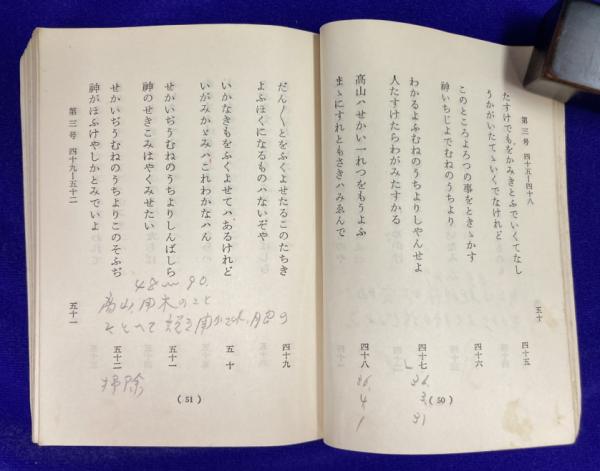 第三号 四十五―四十八
五十
たすけでもをかみきとふでいくてなし
うかがいたてゝいくでなけれど 四十五
このところよろつの事をときゝかす
神いちじよでむねのうちより 四十六
わかるよふむねのうちよりしやんせよ
人たすけたらわがみたすかる 四十七
高山ハせかい一れつをもうよふ
まゝにすれともさきハみゑんで 四十八
26.
3.
21
26.
4.
1
(50)
だん／＼とをふくよせたるこのたちき
よふほくになるものハないぞや 四十九
いかなきもをふくよせてハあるけれど
いがみかゞみハこれわかなハん 五十
せかいぢうむねのうちよりしんばしら
神のせきこみはやくみせたい 五十一
せかいぢうむねのうちよりこのそふぢ
神がほふけやしかとみでいよ 五十二
48〜90.
高山、用木のこと
掃除
第三号 四十九―五十二
五十一
(51)